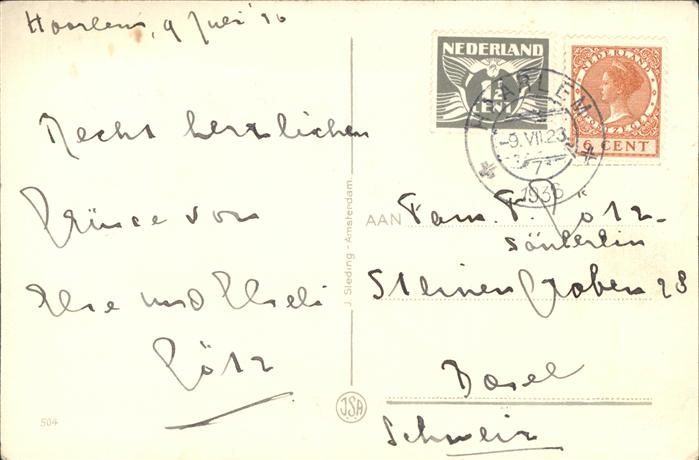 Haarlem, 9 Juli '36
Recht herzlichen
Grüsse von
Else und Elseli
Götz
504
J. Sleding - Amsterdam.
JSA
NEDERLAND
1½
CENT
NEDERLAND
6 CENT
HAARLEM
-9.VII.23
7
1936
AAN
Fam. F. Götz-
Sänterlin
Steinengraben 28
Basel
Schweiz